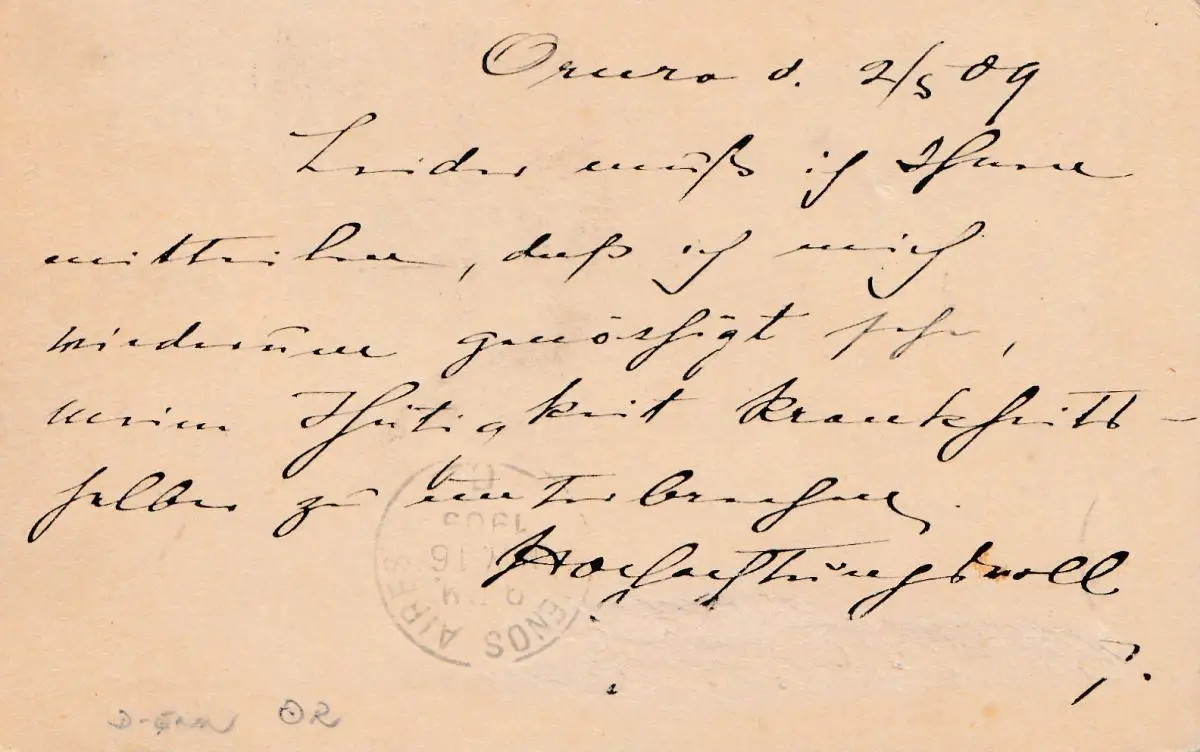 Oruro d. 2/5 09
Leider muß ich Ihnen
mitteilen, daß ich mich
wiederum genöthigt sehe,
meine Thätigkeit krankheits-
halber zu unterbrechen.
Hochachtungsvoll
7.
BUENOS AIRES
16
1909
OR